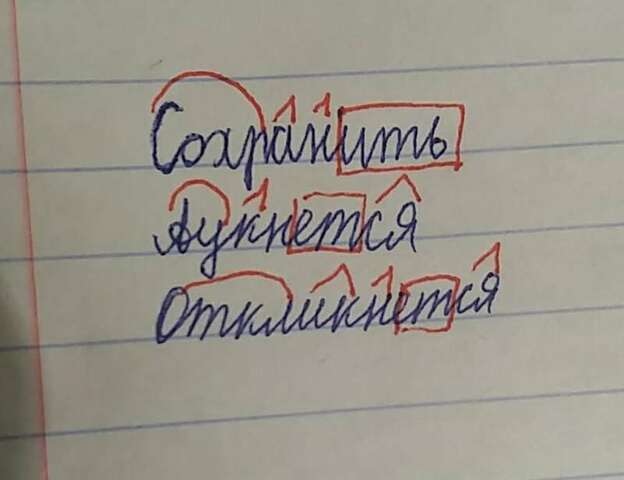 Сохранить
Аукнется
Откликнется